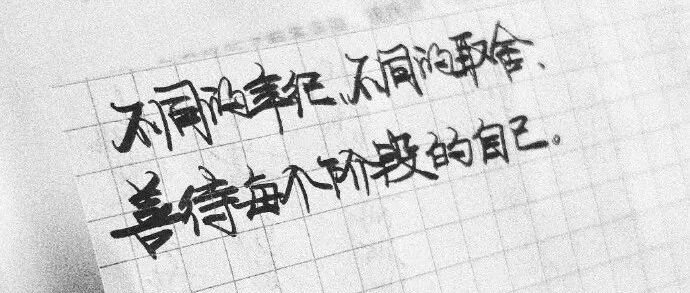 不同的年纪、不同的取舍、
善待每个阶段的自己。